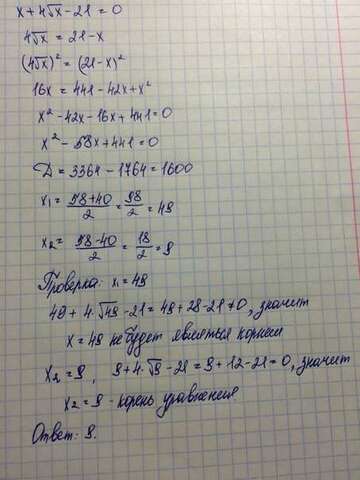 x + 4√x - 21 = 0
4√x = 21 - x
(4√x)² = (21 - x)²
16x = 441 - 42x + x²
x² - 42x - 16x + 441 = 0
x² - 58x + 441 = 0
Д = 3364 - 1764 = 1600
x₁ = (58+40)/2 = 98/2 = 49
x₂ = (58-40)/2 = 18/2 = 9
Проверка: x₁ = 49
49 + 4·√49 - 21 = 49 + 28 - 21 ≠ 0, значит
x = 49 не будет являться корнем
x₂ = 9, 9 + 4·√9 - 21 = 9 + 12 - 21 = 0, значит
x₂ = 9 - корень уравнения
Ответ: 9.